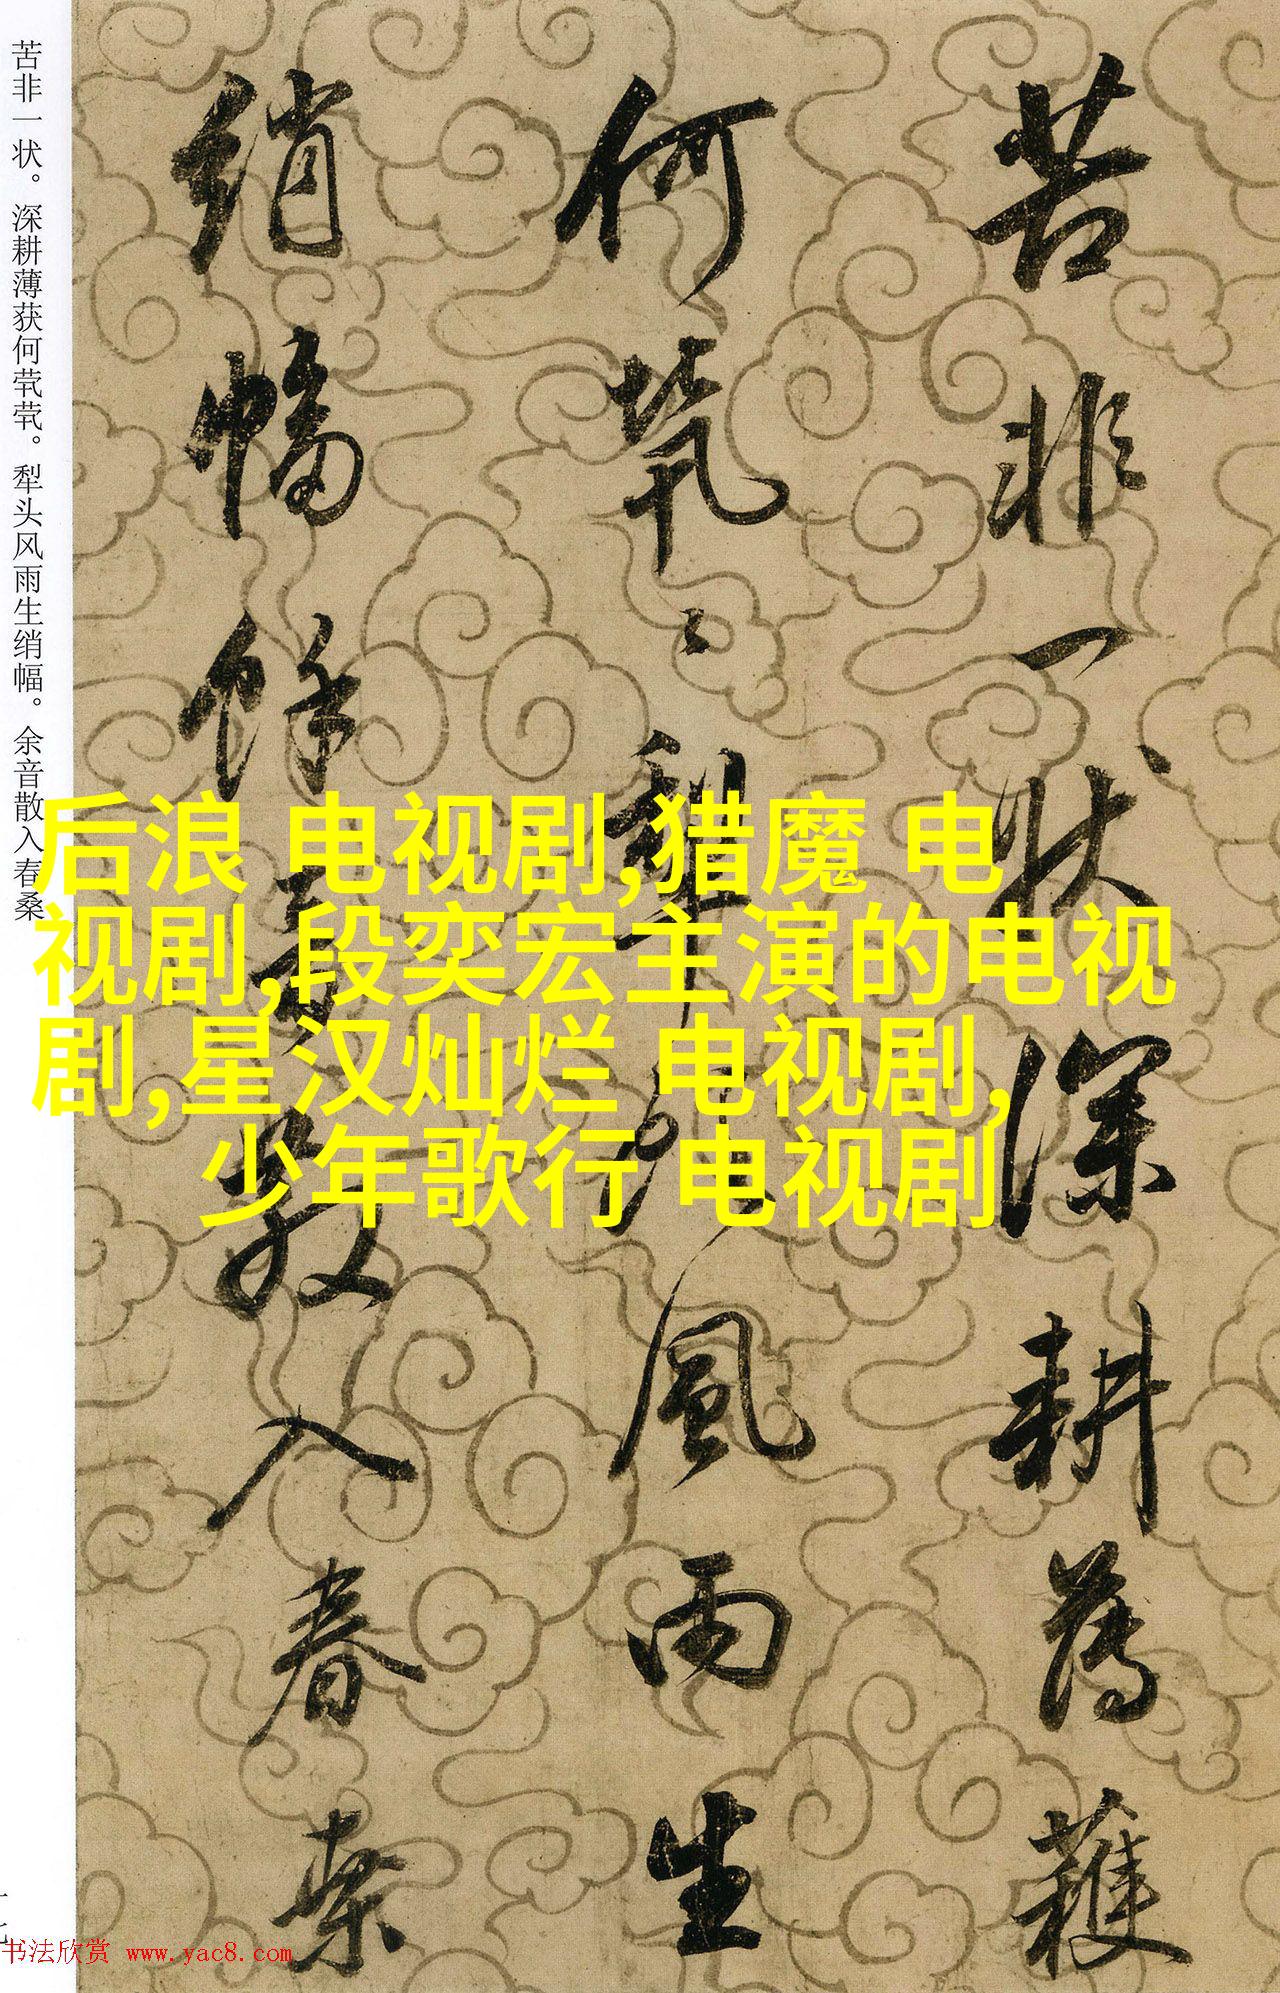 苦非一状深耕薄穫
何茕〻犁頭風雨生
绡幅餘音散入春桑
苦非一状。深耕薄获何茕茕。犁头风雨生绡幅。余音散入春桑
后浪 电视剧,猎魔 电
视剧,段奕宏主演的电视
剧,星汉灿烂 电视剧,
少年歌行 电视剧
书法欣赏 www.yac8.com